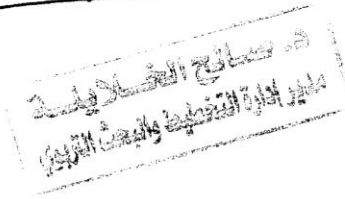 د. صالح الخلايلة
مدير إدارة التخطيط والبحث التربوي